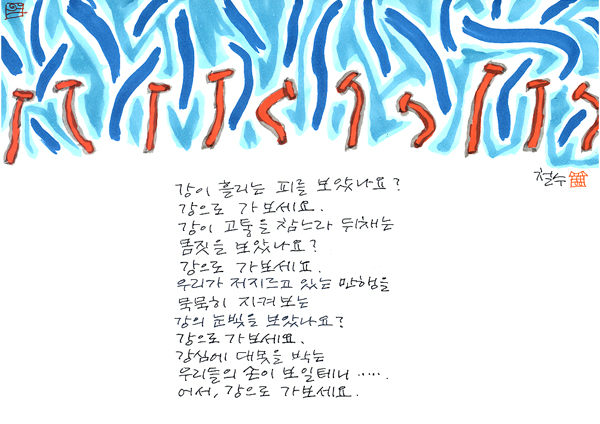 철수
강이 흘리는 피를 보았나요?
강으로 가보세요.
강이 고통을 참느라 뒤채는
몸짓을 보았나요?
강으로 가보세요.
우리가 저지르고 있는 만행을
묵묵히 지켜보는
강의 눈빛을 보았나요?
강으로 가보세요.
강심에 대못을 박는
우리들의 손이 보일테니 .....
어서, 강으로 가보세요.